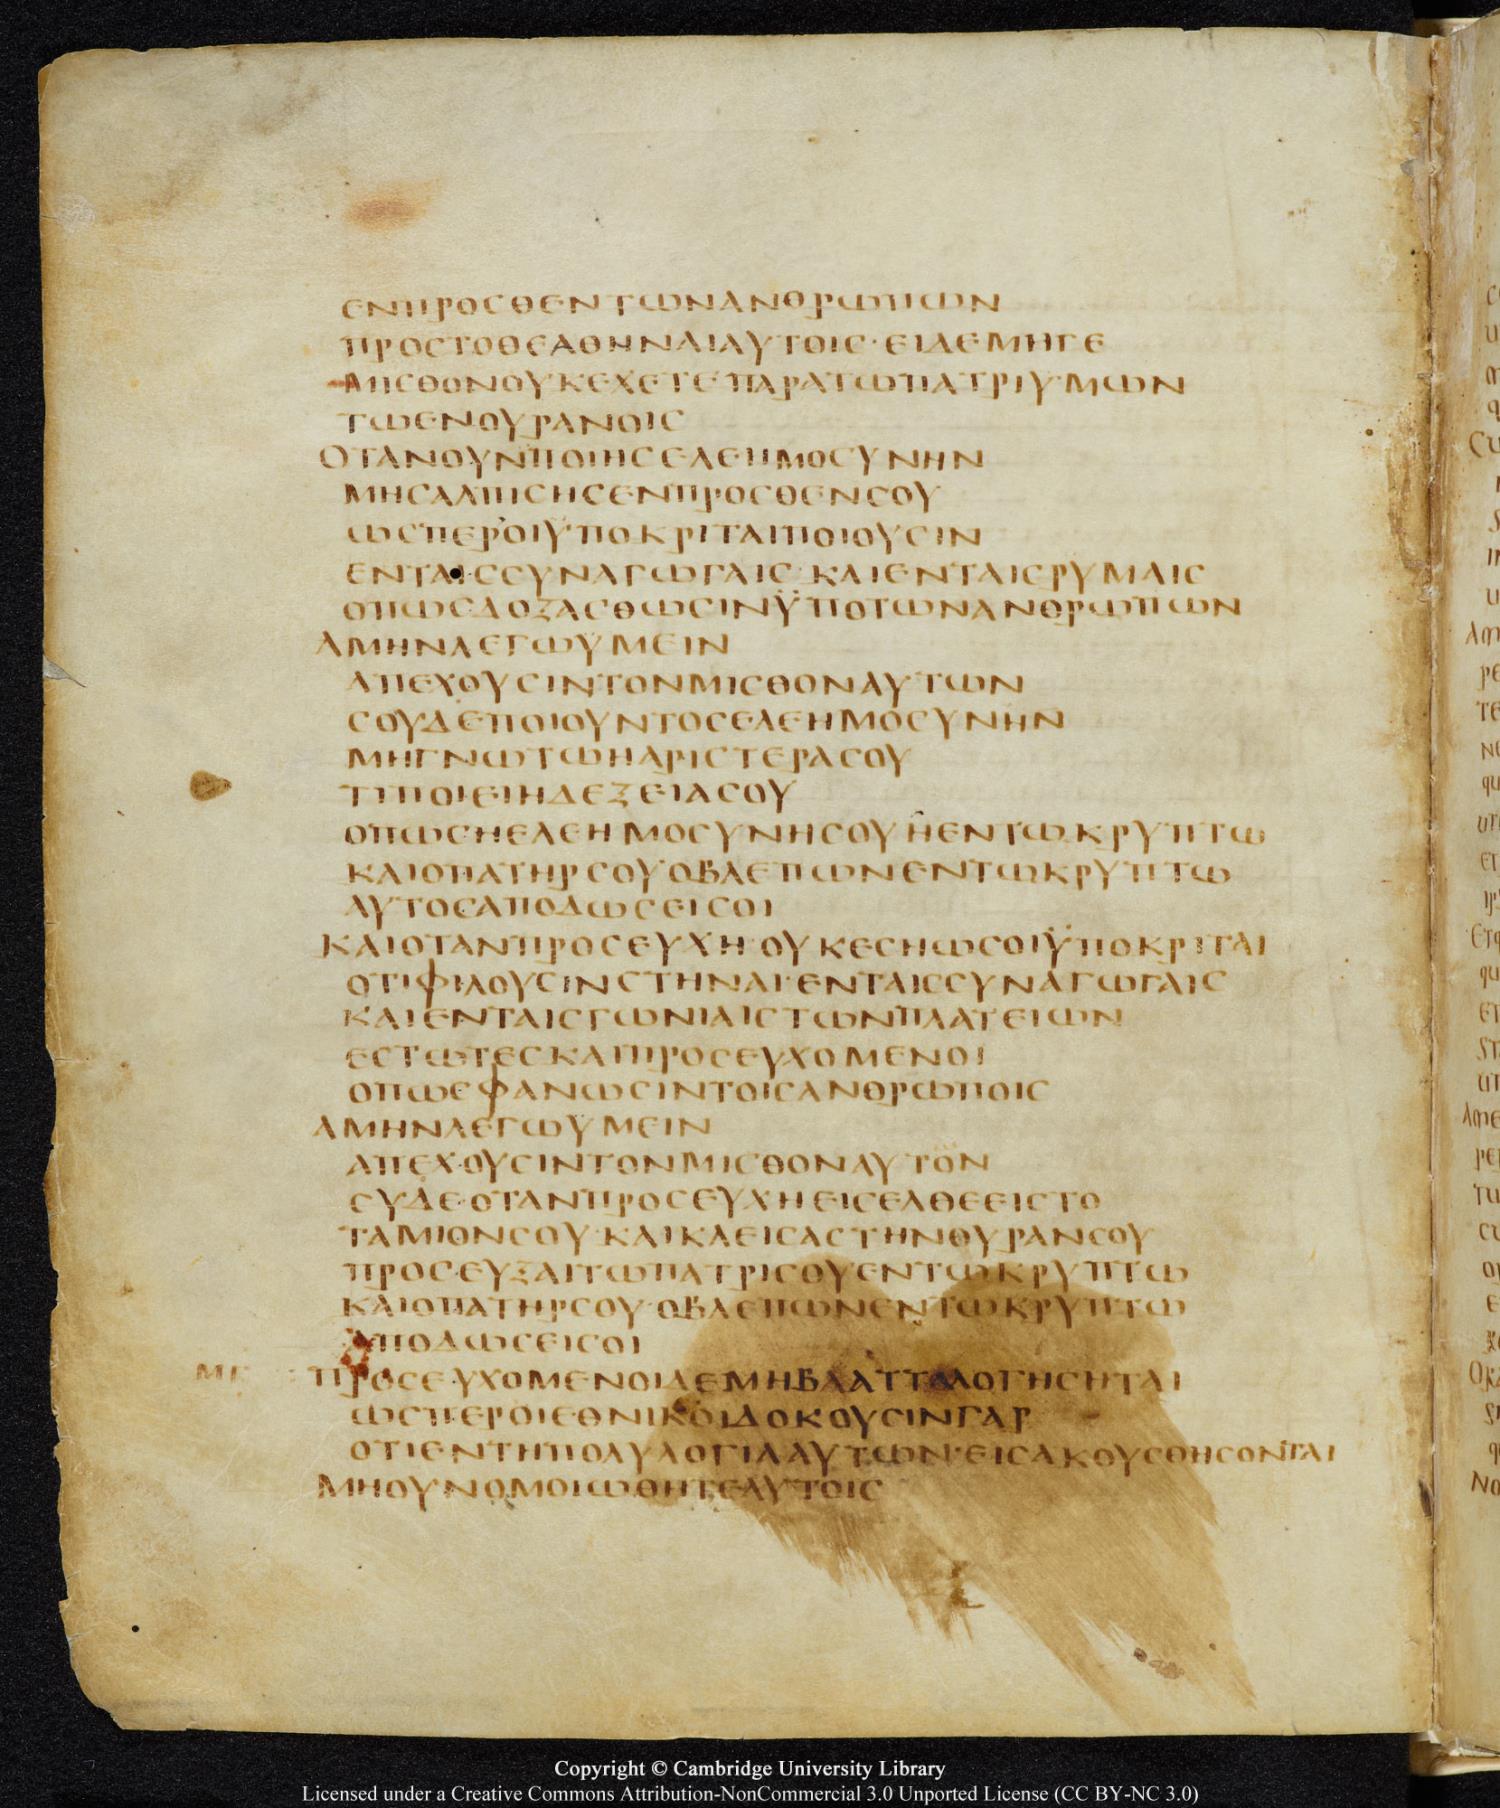 ΕΝΠΡΟΣΘΕΝΤΩΝΑΝΘΡΩΠΩΝ
ΠΡΟΣΤΟΘΕΑΘΗΝΑΙΑΥΤΟΙΣ·ΕΙΔΕΜΗΓΕ
ΜΙΣΘΟΝΟΥΚΕΧΕΤΕΠΑΡΑΤΩΠΑΤΡΙΥΜΩΝ
ΤΩΕΝΟΥΡΑΝΟΙΣ
ΟΤΑΝΟΥΝΠΟΙΗΣΕΛΕΗΜΟΣΥΝΗΝ
ΜΗΣΑΛΠΙΣΗΣΕΝΠΡΟΣΘΕΝΣΟΥ
ΩΣΠΕΡΟΙΥΠΟΚΡΙΤΑΙΠΟΙΟΥΣΙΝ
ΕΝΤΑΙΣΣΥΝΑΓΩΓΑΙΣ·ΚΑΙΕΝΤΑΙΣΡΥΜΑΙΣ
ΟΠΩΣΔΟΞΑΣΘΩΣΙΝΫΠΟΤΩΝΑΝΘΡΩΠΩΝ
ΑΜΗΝΛΕΓΩΥΜΕΙΝ
ΑΠΕΧΟΥΣΙΝΤΟΝΜΙΣΘΟΝΑΥΤΩΝ
ΣΟΥΔΕΠΟΙΟΥΝΤΟΣΕΛΕΗΜΟΣΥΝΗΝ
ΜΗΓΝΩΤΩΗΑΡΙΣΤΕΡΑΣΟΥ
ΤΙΠΟΙΕΙΗΔΕΞΕΙΑΣΟΥ
ΟΠΩΣΗΕΛΕΗΜΟΣΥΝΗΣΟΥΗΕΝΤΩΚΡΥΠΤΩ
ΚΑΙΟΠΑΤΗΡΣΟΥΟΒΛΕΠΩΝΕΝΤΩΚΡΥΠΤΩ
ΑΥΤΟΣΑΠΟΔΩΣΕΙΣΟΙ
ΚΑΙΟΤΑΝΠΡΟΣΕΥΧΗ·ΟΥΚΕΣΗΩΣΟΙΫΠΟΚΡΙΤΑΙ
ΟΤΙΦΙΛΟΥΣΙΝΣΤΗΝΑΙ·ΕΝΤΑΙΣΣΥΝΑΓΩΓΑΙΣ
ΚΑΙΕΝΤΑΙΣΓΩΝΙΑΙΣΤΩΝΠΛΑΤΕΙΩΝ
ΕΣΤΩΤΕΣΚΑΙΠΡΟΣΕΥΧΟΜΕΝΟΙ
ΟΠΩΣΦΑΝΩΣΙΝΤΟΙΣΑΝΘΡΩΠΟΙΣ
ΑΜΗΝΛΕΓΩΥΜΕΙΝ
ΑΠΕΧΟΥΣΙΝΤΟΝΜΙΣΘΟΝΑΥΤΟΝ
ΣΥΔΕ·ΟΤΑΝΠΡΟΣΕΥΧΗΕΙΣΕΛΘΕΕΙΣΤΟ
ΤΑΜΙΟΝΣΟΥ·ΚΑΙΚΛΕΙΣΑΣΤΗΝΘΥΡΑΝΣΟΥ
ΠΡΟΣΕΥΞΑΙΤΩΠΑΤΡΙΣΟΥΕΝΤΩΚΡΥΠΤΩ
ΚΑΙΟΠΑΤΗΡΣΟΥ·ΟΒΛΕΠΩΝΕΝΤΩΚΡΥΠΤΩ
ΑΠΟΔΩΣΕΙΣΟΙ
ΜΓ ΠΡΟΣΕΥΧΟΜΕΝΟΙΔΕΜΗΒΛΑΤΤΑΛΟΓΗΣΗΤΑΙ
ΩΣΠΕΡΟΙΕΘΝΙΚΟΙΔΟΚΟΥΣΙΝΓΑΡ
ΟΤΙΕΝΤΗΠΟΛΥΛΟΓΙΑΑΥΤΩΝ·ΕΙΣΑΚΟΥΣΘΗΣΟΝΤΑΙ
ΜΗΟΥΝΟΜΟΙΩΘΗΤΕΑΥΤΟΙΣ
Copyright © Cambridge University Library
Licensed under a Creative Commons Attribution-NonCommercial 3.0 Unported License (CC BY-NC 3.0)